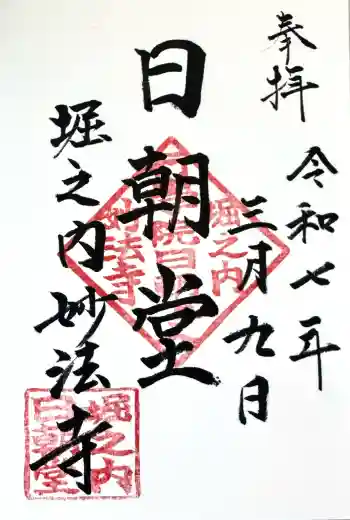 奉拝
令和七年
三月九日
日朝堂
堀之内妙法寺
堀之内
妙法寺
堀之内
日朝堂